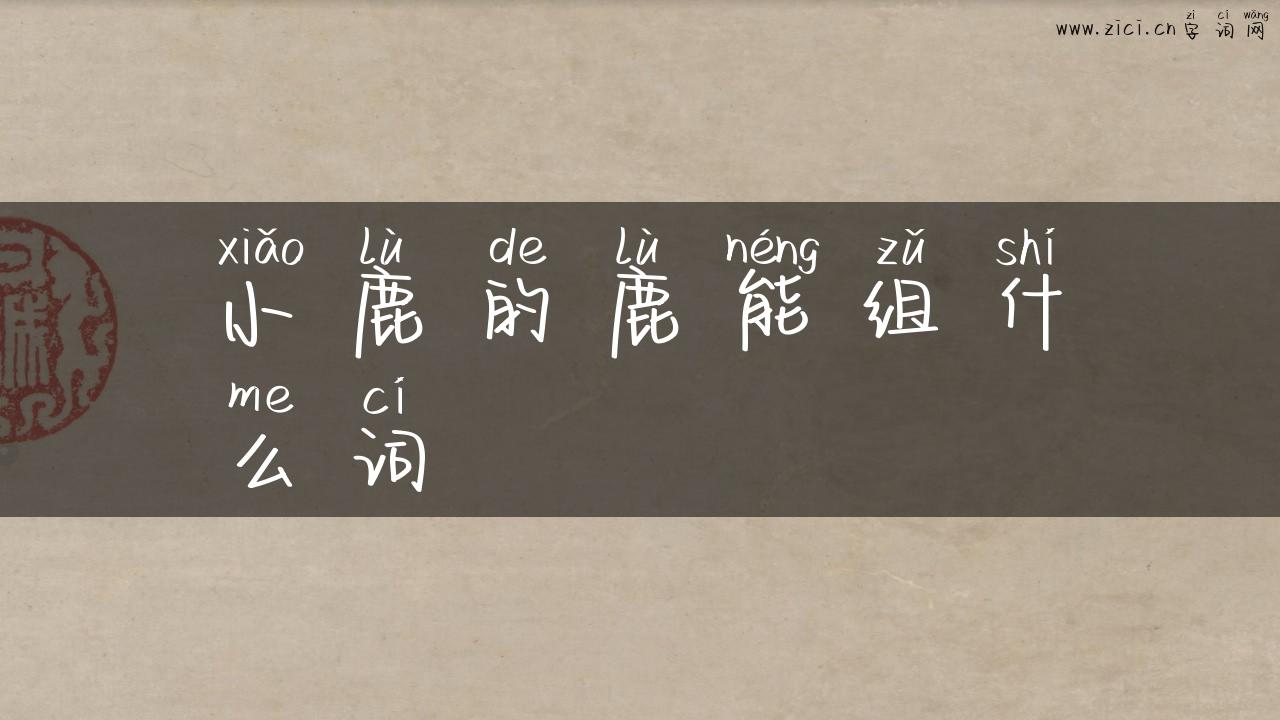 zì cí wǎng
www.zici.cn 字词网
xiǎo lù de lù néng zǔ shí
小鹿的鹿能组什
me cí
么词